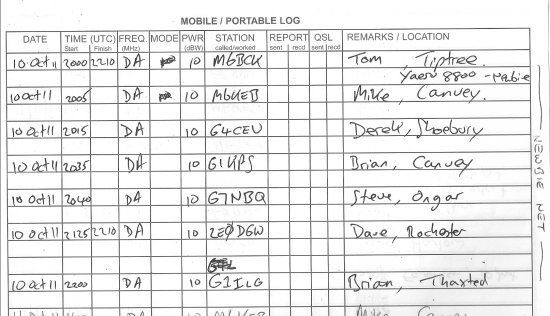 MOBILE / PORTABLE LOG
DATE TIME (UTC) FREQ. MODE PWR STATION REPORT QSL REMARKS / LOCATION
Start Finish (MHz) (dBW) called/worked sent recd sent recd
10 Oct 11 2000 2210 DA 10 M6BCK Tom, Tiptree
Yaesu 8800
10 Oct 11 2005 DA 10 M6KEB Mike, Canvey.
10 Oct 11 2015 DA 10 G4CEU Derek, Shoebury
10 Oct 11 2035 DA 10 G1KPS Brian, Canvey
10 Oct 11 2040 DA 10 G7NBQ Steve, Ongar
10 Oct 11 2125 2210 DA 10 2E0DGW Dave, Rochester
10 Oct 11 2200 DA 10 G1ILG Brian, Thaxted
NEWBIE NET